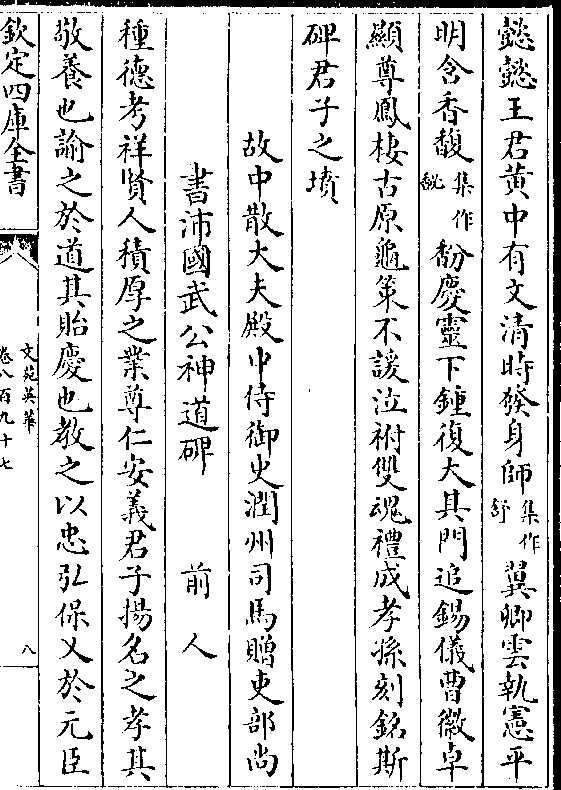 懿懿王君黃中有文清時發身師集作舒冀卿雲執憲平
明含香馥集作馝馚慶靈下鍾復大其門追錫儀曹徽卓
顯尊鳳棲古原龜筴不諼泣祔雙魂禮成孝孫刻銘斯
碑君子之墳
故中散大夫殿中侍御史潤州司馬贈吏部尚
書沛國武公神道碑 前人
種德考祥賢人積厚之業尊仁安義君子揚名之孝其
敬養也諭之於道其貽慶也教之以忠弘保乂於元臣
欽定四庫全書
文苑英華
卷八百九十七
八